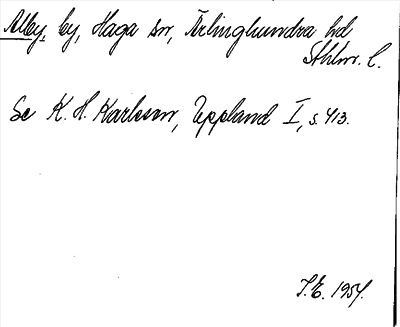 Alby, by, Haga sn, Ärlinghundra hd
Sthlm. l.
Se K. H. Karlsson, Uppland I, s. 413.
T.E. 1954.